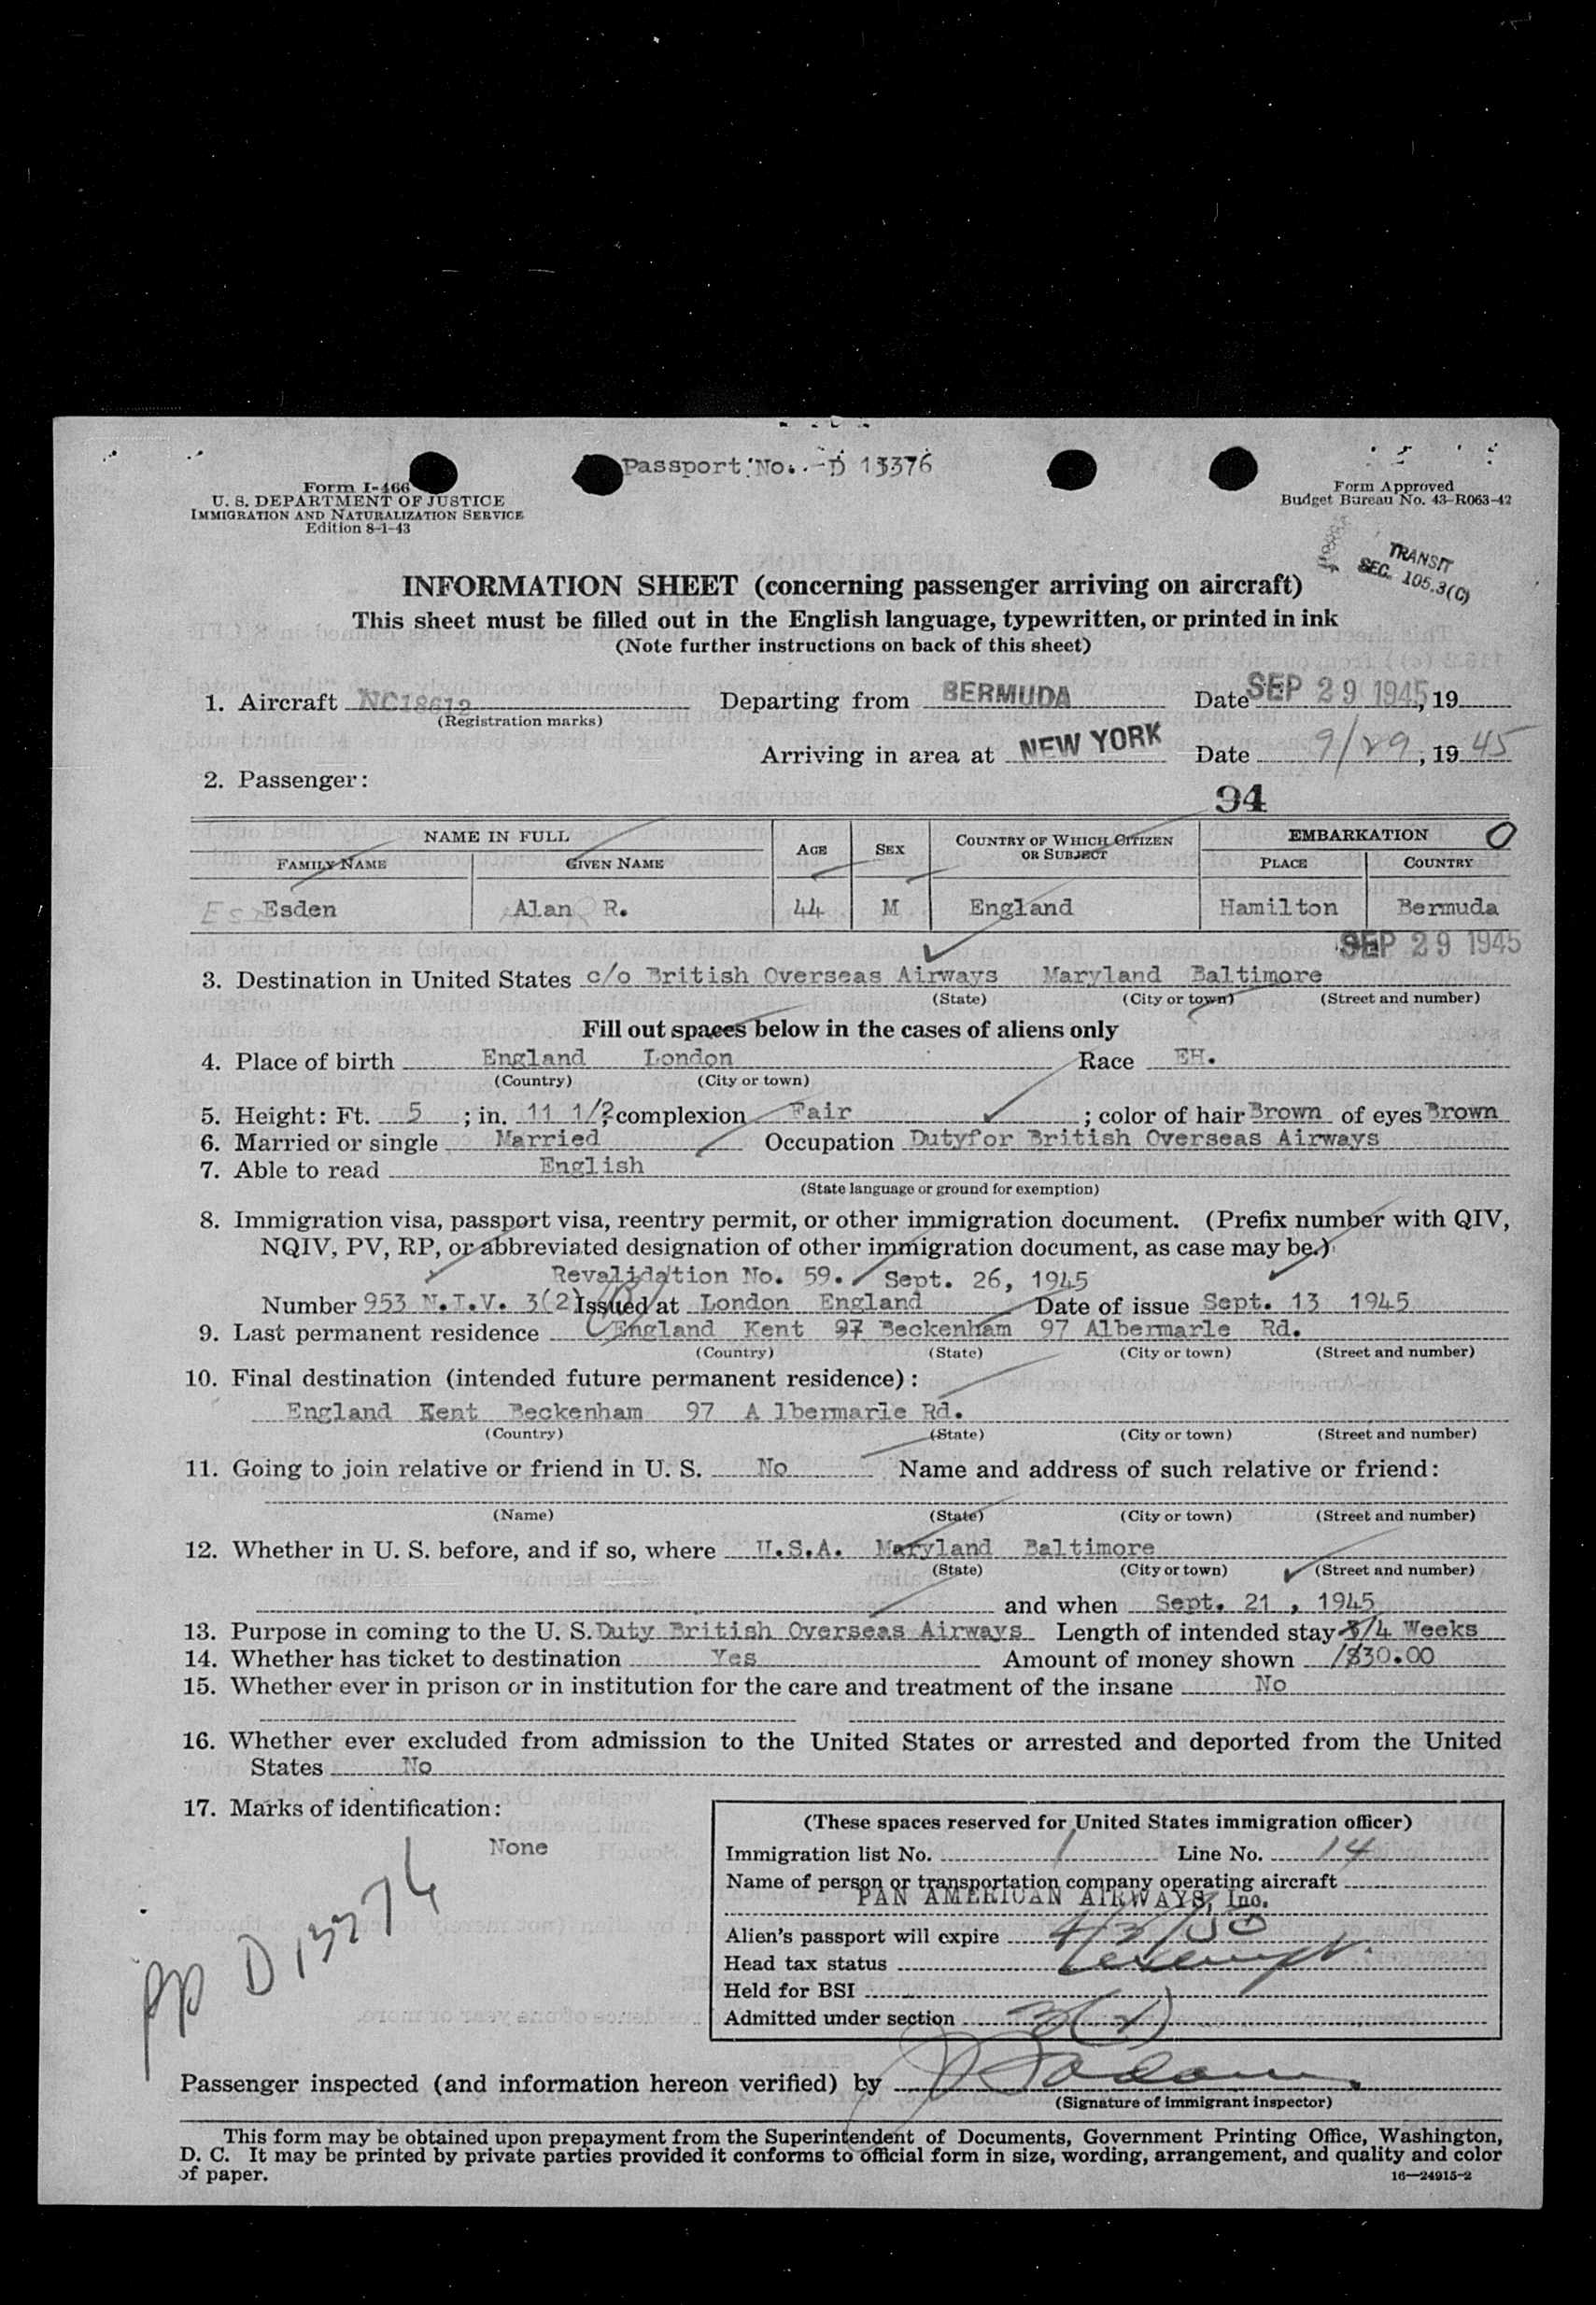 Passport No. - D 13376
Form I-466
U. S. DEPARTMENT OF JUSTICE
IMMIGRATION AND NATURALIZATION SERVICE
Edition 8-1-43
Form Approved
Budget Bureau No. 43-R063-42
TRANSIT
SEC. 105.3(C)
INFORMATION SHEET (concerning passenger arriving on aircraft)
This sheet must be filled out in the English language, typewritten, or printed in ink
(Note further instructions on back of this sheet)
1. Aircraft NC18612 Departing from BERMUDA Date SEP 29 1945, 19
(Registration marks)
Arriving in area at NEW YORK Date 9/29, 19 45
2. Passenger:
94
NAME IN FULL AGE SEX COUNTRY OF WHICH CITIZEN OR SUBJECT EMBARKATION 0
FAMILY NAME GIVEN NAME PLACE COUNTRY
Esden Alan R. 44 M England Hamilton Bermuda
SEP 29 1945
3. Destination in United States c/o British Overseas Airways Maryland Baltimore
(State) (City or town) (Street and number)
Fill out spaces below in the cases of aliens only
4. Place of birth England London Race EH.
(Country) (City or town)
5. Height: Ft. 5 ; in. 11 1/2; complexion Fair ; color of hair Brown of eyes Brown
6. Married or single Married Occupation Dutyfor British Overseas Airways
7. Able to read English
(State language or ground for exemption)
8. Immigration visa, passport visa, reentry permit, or other immigration document. (Prefix number with QIV,
NQIV, PV, RP, or abbreviated designation of other immigration document, as case may be.)
Revalidation No. 59. Sept. 26, 1945
Number 953 N.I.V. 3(2) Issued at London England Date of issue Sept. 13 1945
9. Last permanent residence England Kent 97 Beckenham 97 Albermarle Rd.
(Country) (State) (City or town) (Street and number)
10. Final destination (intended future permanent residence):
England Kent Beckenham 97 A lbermarle Rd.
(Country) (State) (City or town) (Street and number)
11. Going to join relative or friend in U. S. No Name and address of such relative or friend:
(Name) (State) (City or town) (Street and number)
12. Whether in U. S. before, and if so, where U.S.A. Maryland Baltimore
(State) (City or town) (Street and number)
and when Sept. 21 , 1945
13. Purpose in coming to the U. S. Duty British Overseas Airways Length of intended stay 3/4 Weeks
14. Whether has ticket to destination Yes Amount of money shown /$30.00
15. Whether ever in prison or in institution for the care and treatment of the insane No
16. Whether ever excluded from admission to the United States or arrested and deported from the United
States No
17. Marks of identification:
None
pp D 13376
(These spaces reserved for United States immigration officer)
Immigration list No. 1 Line No. 14
Name of person or transportation company operating aircraft
PAN AMERICAN AIRWAYS, Inc.
Alien's passport will expire 4/3/50
Head tax status exempt.
Held for BSI
Admitted under section 3(2)
Passenger inspected (and information hereon verified) by
(Signature of immigrant inspector)
This form may be obtained upon prepayment from the Superintendent of Documents, Government Printing Office, Washington,
D. C. It may be printed by private parties provided it conforms to official form in size, wording, arrangement, and quality and color
of paper.
16—24915-2